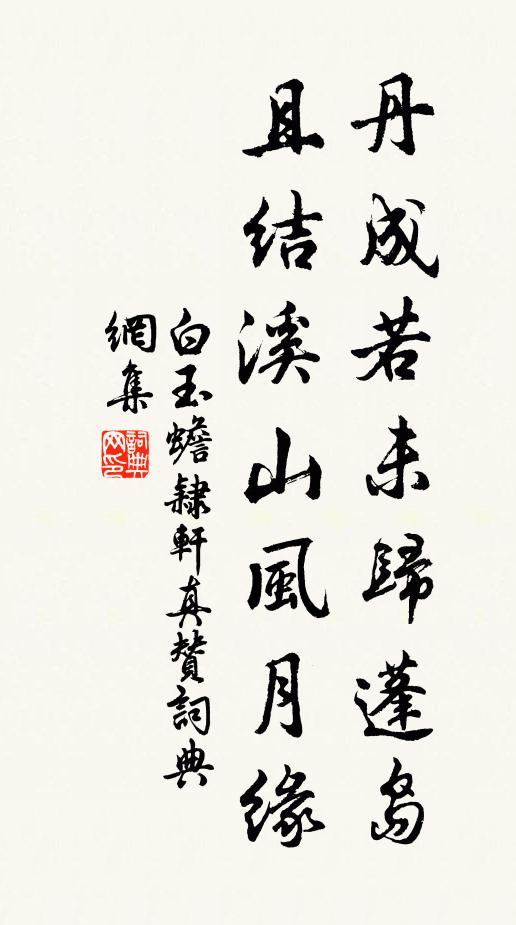 丹成若未歸蓬島
且結溪山風月緣
白玉蟾隸軒真贊詞典
網集
詞典網印